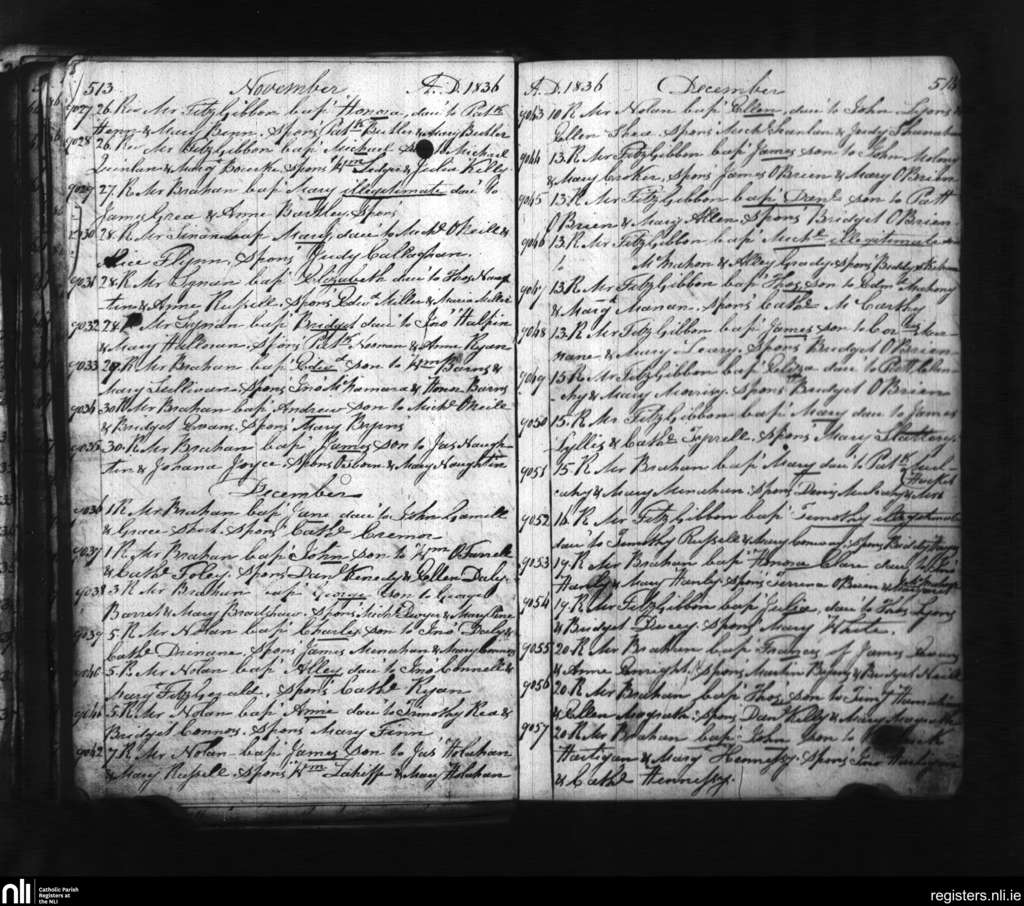 513 November A.D. 1836
9027 26. Rev Mr FitzGibbon bap Honora, dau to Patk
& Mary Benn. Spons Patk Butler & Mary Butler
9028 26. Rev Mr FitzGibbon bap Michael Michael
Quinlan & Bourke Spons Wm & Julia Kelly
9029 27. R Mr Brahan bap Mary illegitimate dau to
James Crea & Anne Barkley. Spons
9030 28. R Mr bap Mary dau to Michl O'Neill &
Flynn, Spons Judy
9031 28. R Mr Synan bap Elizabeth dau to Thos Naugh
ten & Anne Russell. Spons Edmd Miller & Maria Miller
9032 28. R Mr Synan bap Bridget dau to Jno Halpin
& Mary Halloran. Spons Patk Noonan & Anne Ryan
9033 29. R Mr Brahan bap son to Wm Barns &
Mary Sullivan. Spons Jno McNamara & Honor Barns
9034 30. R Mr Brahan bap Andrew son to Michl O'Neill
& Bridget Evans. Spons Mary Bryens
9035 30. R Mr Brahan bap James son to Jas Naugh-
tin & Johana Joyce. Spons & Mary Naughtin
December
9036 1. R Mr Brahan bap Jane dau to John Gamell
& Grace Short. Spons Cathe Cremor
9037 1. R Mr Brahan bap John son to Wm O'Farrell
& Cathe Foley. Spons Danl Kenedy & Ellen Daly
9038 3. R Mr Brahan bap George son to George
Barret & Mary Bradshaw. Spons Michl & Mary
9039 5. R Mr Nolan bap Charles son to Jno Daly &
Cathe Drenane. Spons James Menahan & Mary Connors
5. R Mr Nolan bap Alley dau to Jno Connell &
Mary FitzGerald. Spons Cathe Ryan
5. R Mr Nolan bap Anne dau to Timothy Rea &
Bridget Connos. Spons Mary Finn
9042 7. R Mr Nolan bap James son to Jas Holahan
& Mary Russell. Spons Wm Lahiffe & Mary Holahan
A.D. 1836 December 514
9043 10. R Mr Nolan bap Ellen, dau to John Lyons
Ellen Shea. Spons Michl Scanlan & Judy Shanahan
9044 13. R Mr FitzGibbon bap James son to John Molony
& Mary Croker, Spons James O'Brien & Mary O'Brien
9045 13. R Mr FitzGibbon bap Danl son to Patt
O'Brien & Mary Allen Spons Bridget O'Brien
9046 13. R Mr FitzGibbon bap Michl illegitimate
McMahon & Alley Grady. Spons
9047 13. R Mr FitzGibbon bap Thos son to Edmd Mahony
& Margt Manan. Spons Cathe McCarthy
9048 13. R Mr FitzGibbon bap James son to Cors
nane & Mary Leary. Spons Bridget O'Brien
9049 15. R Mr FitzGibbon bap Eliza dau to Patt
& Mary. Spons Bridget O'Brien
9050 15. R Mr FitzGibbon bap Mary dau to James
Lyllis & Cathe Tyrrell. Spons Mary Slattery
9051 15. R Mr Brahan bap Mary dau to Patk Mul-
cahy & Mary Menahan. Spons Denis Mulcahy & Mrs
9052 16. R Mr FitzGibbon bap Timothy illegitimate
dau to Timothy Russell & Mary Conway. Spons
9053 19. R Mr Brahan bap Honora Clare dau to
Hanly & Mary Hanly. Spons Terence O'Brien &
9054 19. R Mr FitzGibbon bap Julia, dau to Thos Lyons
& Bridget. Spons Mary White.
9055 20. R Mr Brahan bap Frances of James Evans
& Anne Enright. Spons Martin Byrns & Bridget Neill
9056 20. R Mr Brahan bap Thos son to Timy
& Ellen Magrath. Spons Danl Kelly & Mary Magrath
9057 20. R Mr Brahan bap John son to
Hartigan & Mary Hennessy. Spons Jno Hartigan
& Cathe Hennessy.
nli Catholic Parish
Registers at
the NLI
registers.nli.ie